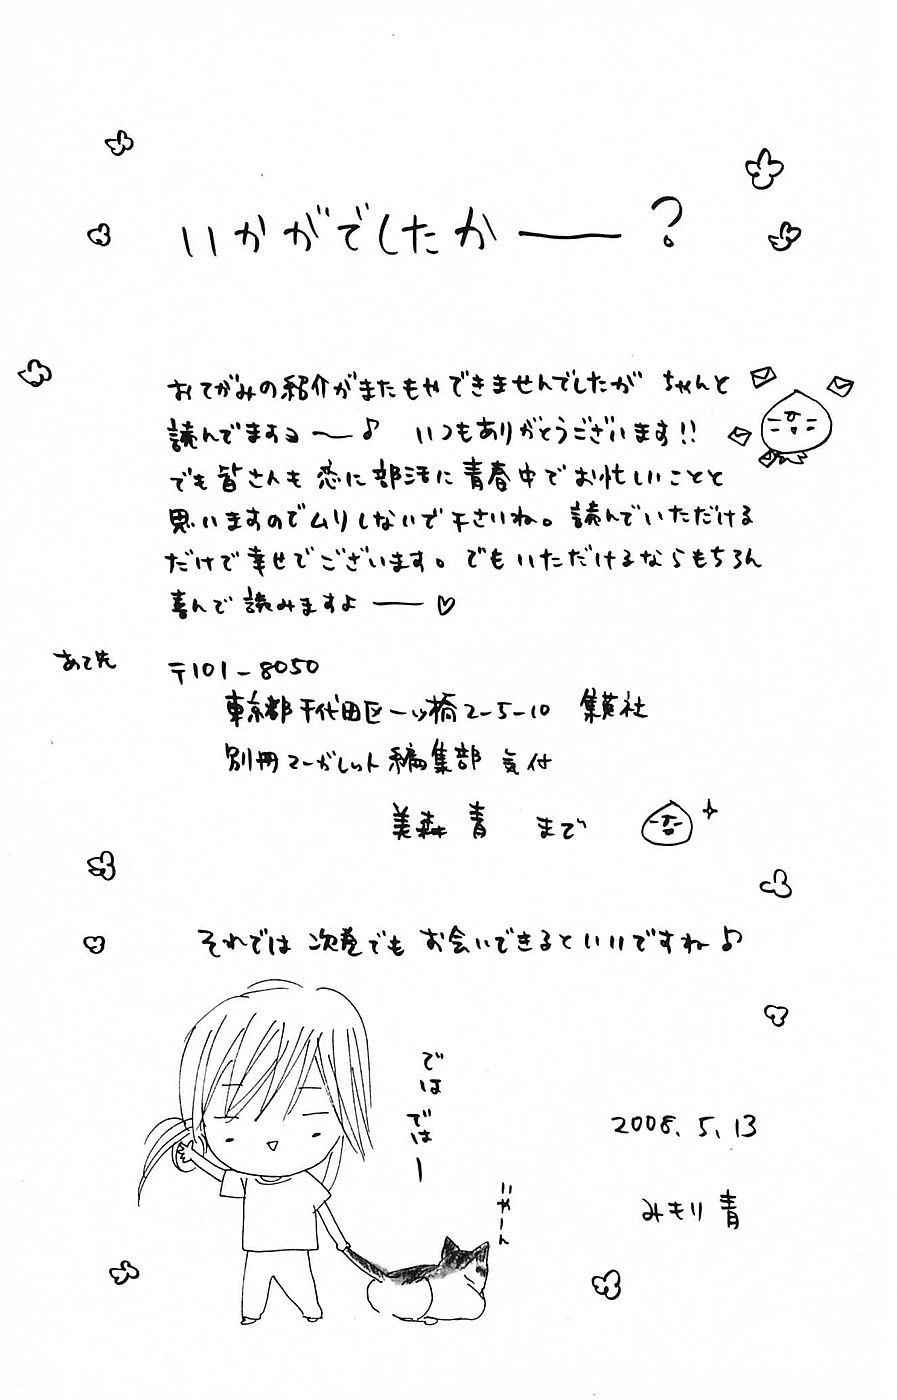 いかがでしたか――?
おてがみの紹介がまたもやできませんでしたが ちゃんと
読んでますヨ〜♪ いつもありがとうございます!!
でも皆さんも恋に部活に青春中でお忙しいことと
思いますのでムリしないで下さいね。読んでいただける
だけで幸せでございます。でもいただけるならもちろん
喜んで読みますよ――♡
あて先
〒101-8050
東京都千代田区一ッ橋2-5-10 集英社
別冊マーガレット編集部 気付
美森 青 まで
それでは次巻でもお会いできるといいですね♪
ではではー
いやーん
2008.5.13
みもり青